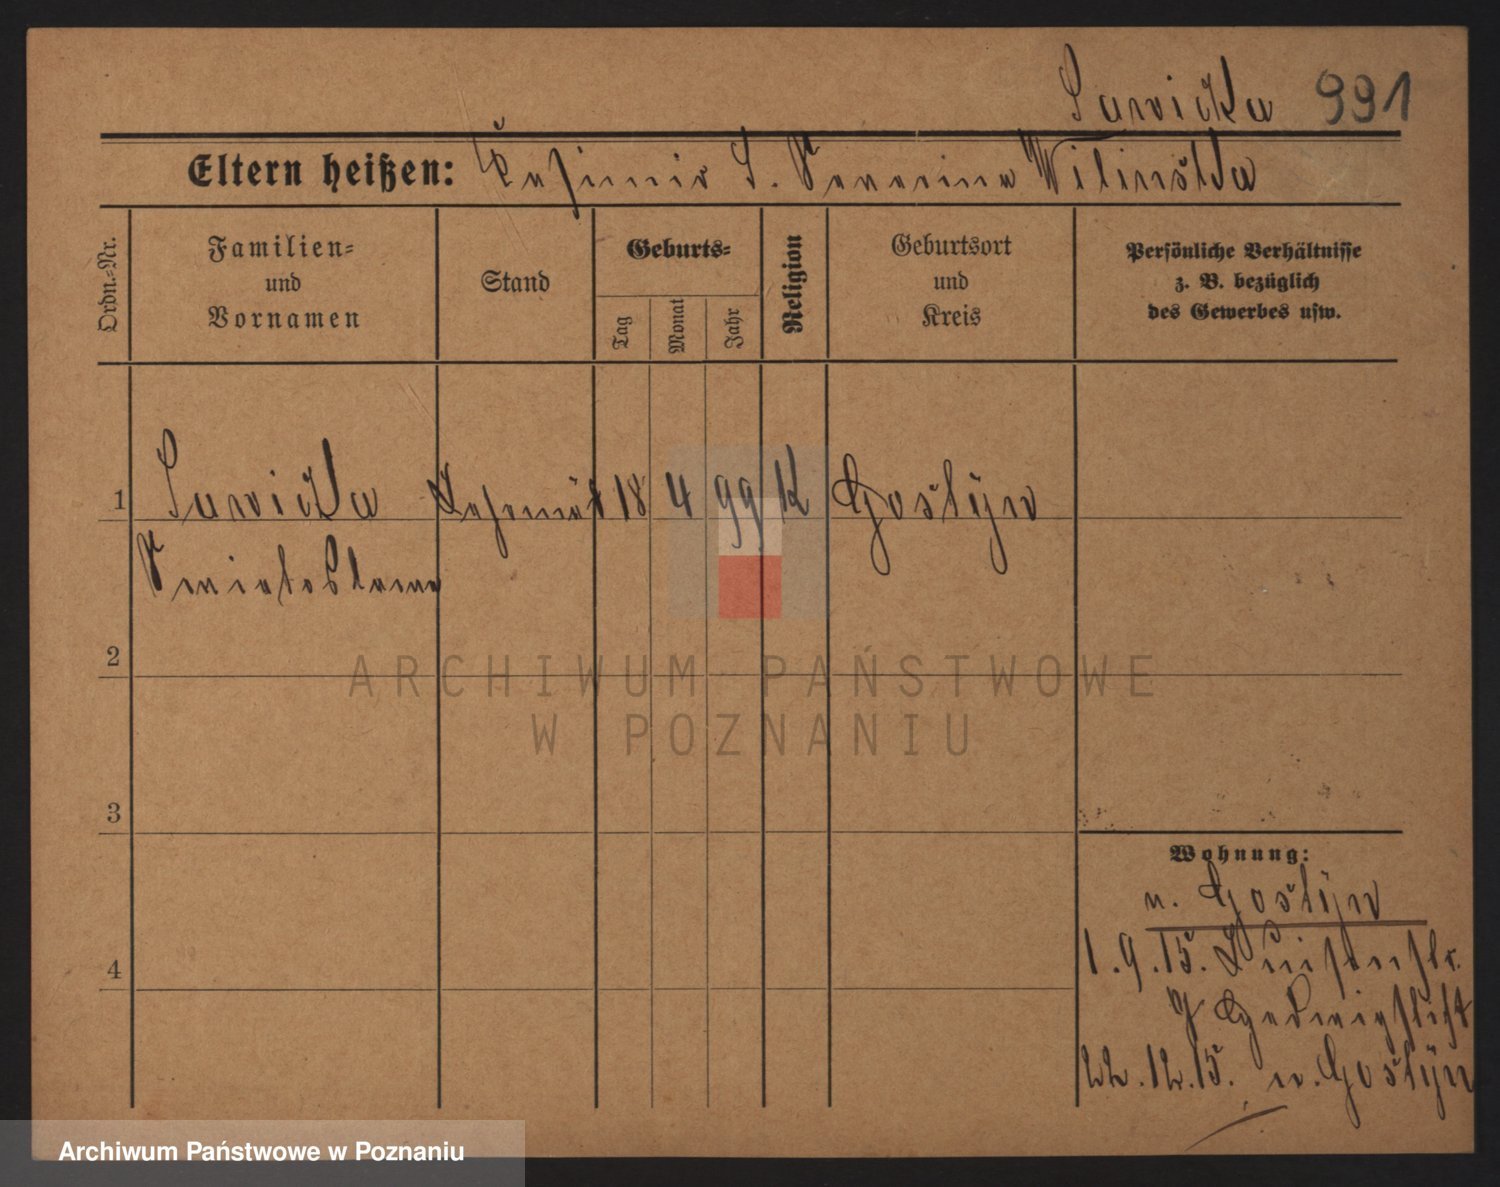 Sawicka 991
Eltern heißen: Kasimir S. Severina Wilinska
Ordn.-Nr.
Familien-
und
Vornamen
Stand
Geburts-
Tag
Monat
Jahr
Religion
Geburtsort
und
Kreis
Persönliche Verhältnisse
z. B. bezüglich
des Gewerbes usw.
1 Sawicka 18 4 99 K Gostyn
2
3
4
Wohnung:
n. Gostyn
1.9.15. Luisenstr.
22.12.15. n. Gostyn
ARCHIWUM PAŃSTWOWE
W POZNANIU
Archiwum Państwowe w Poznaniu